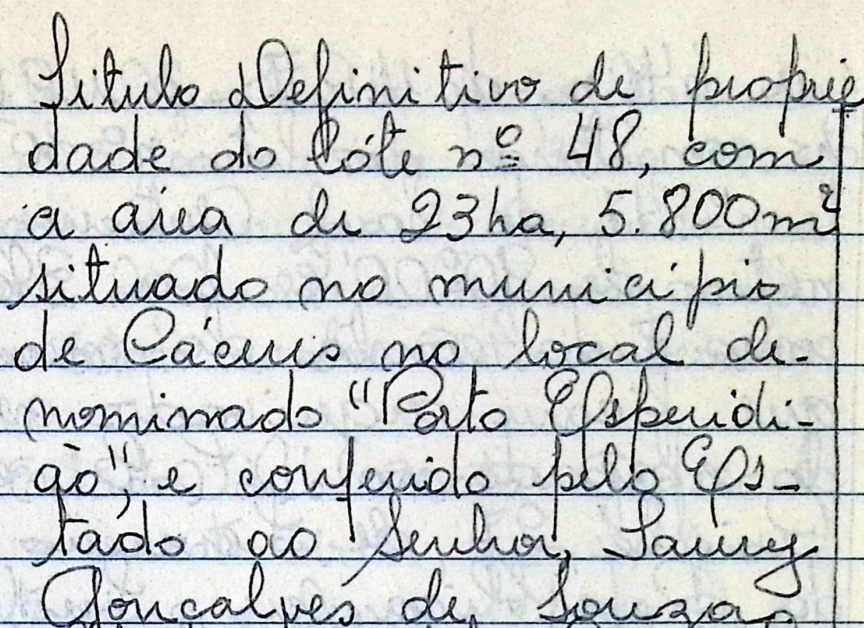 Titulo Definitivo de proprie
dade do lóte nº 48, com
a área de 23ha, 5.800m²
situado no municipio
de Cáceres no local de-
nominado "Porto Esperidi-
ão", e conferido pelo Es-
tado ao Senhor,
Gonçalves de Souza